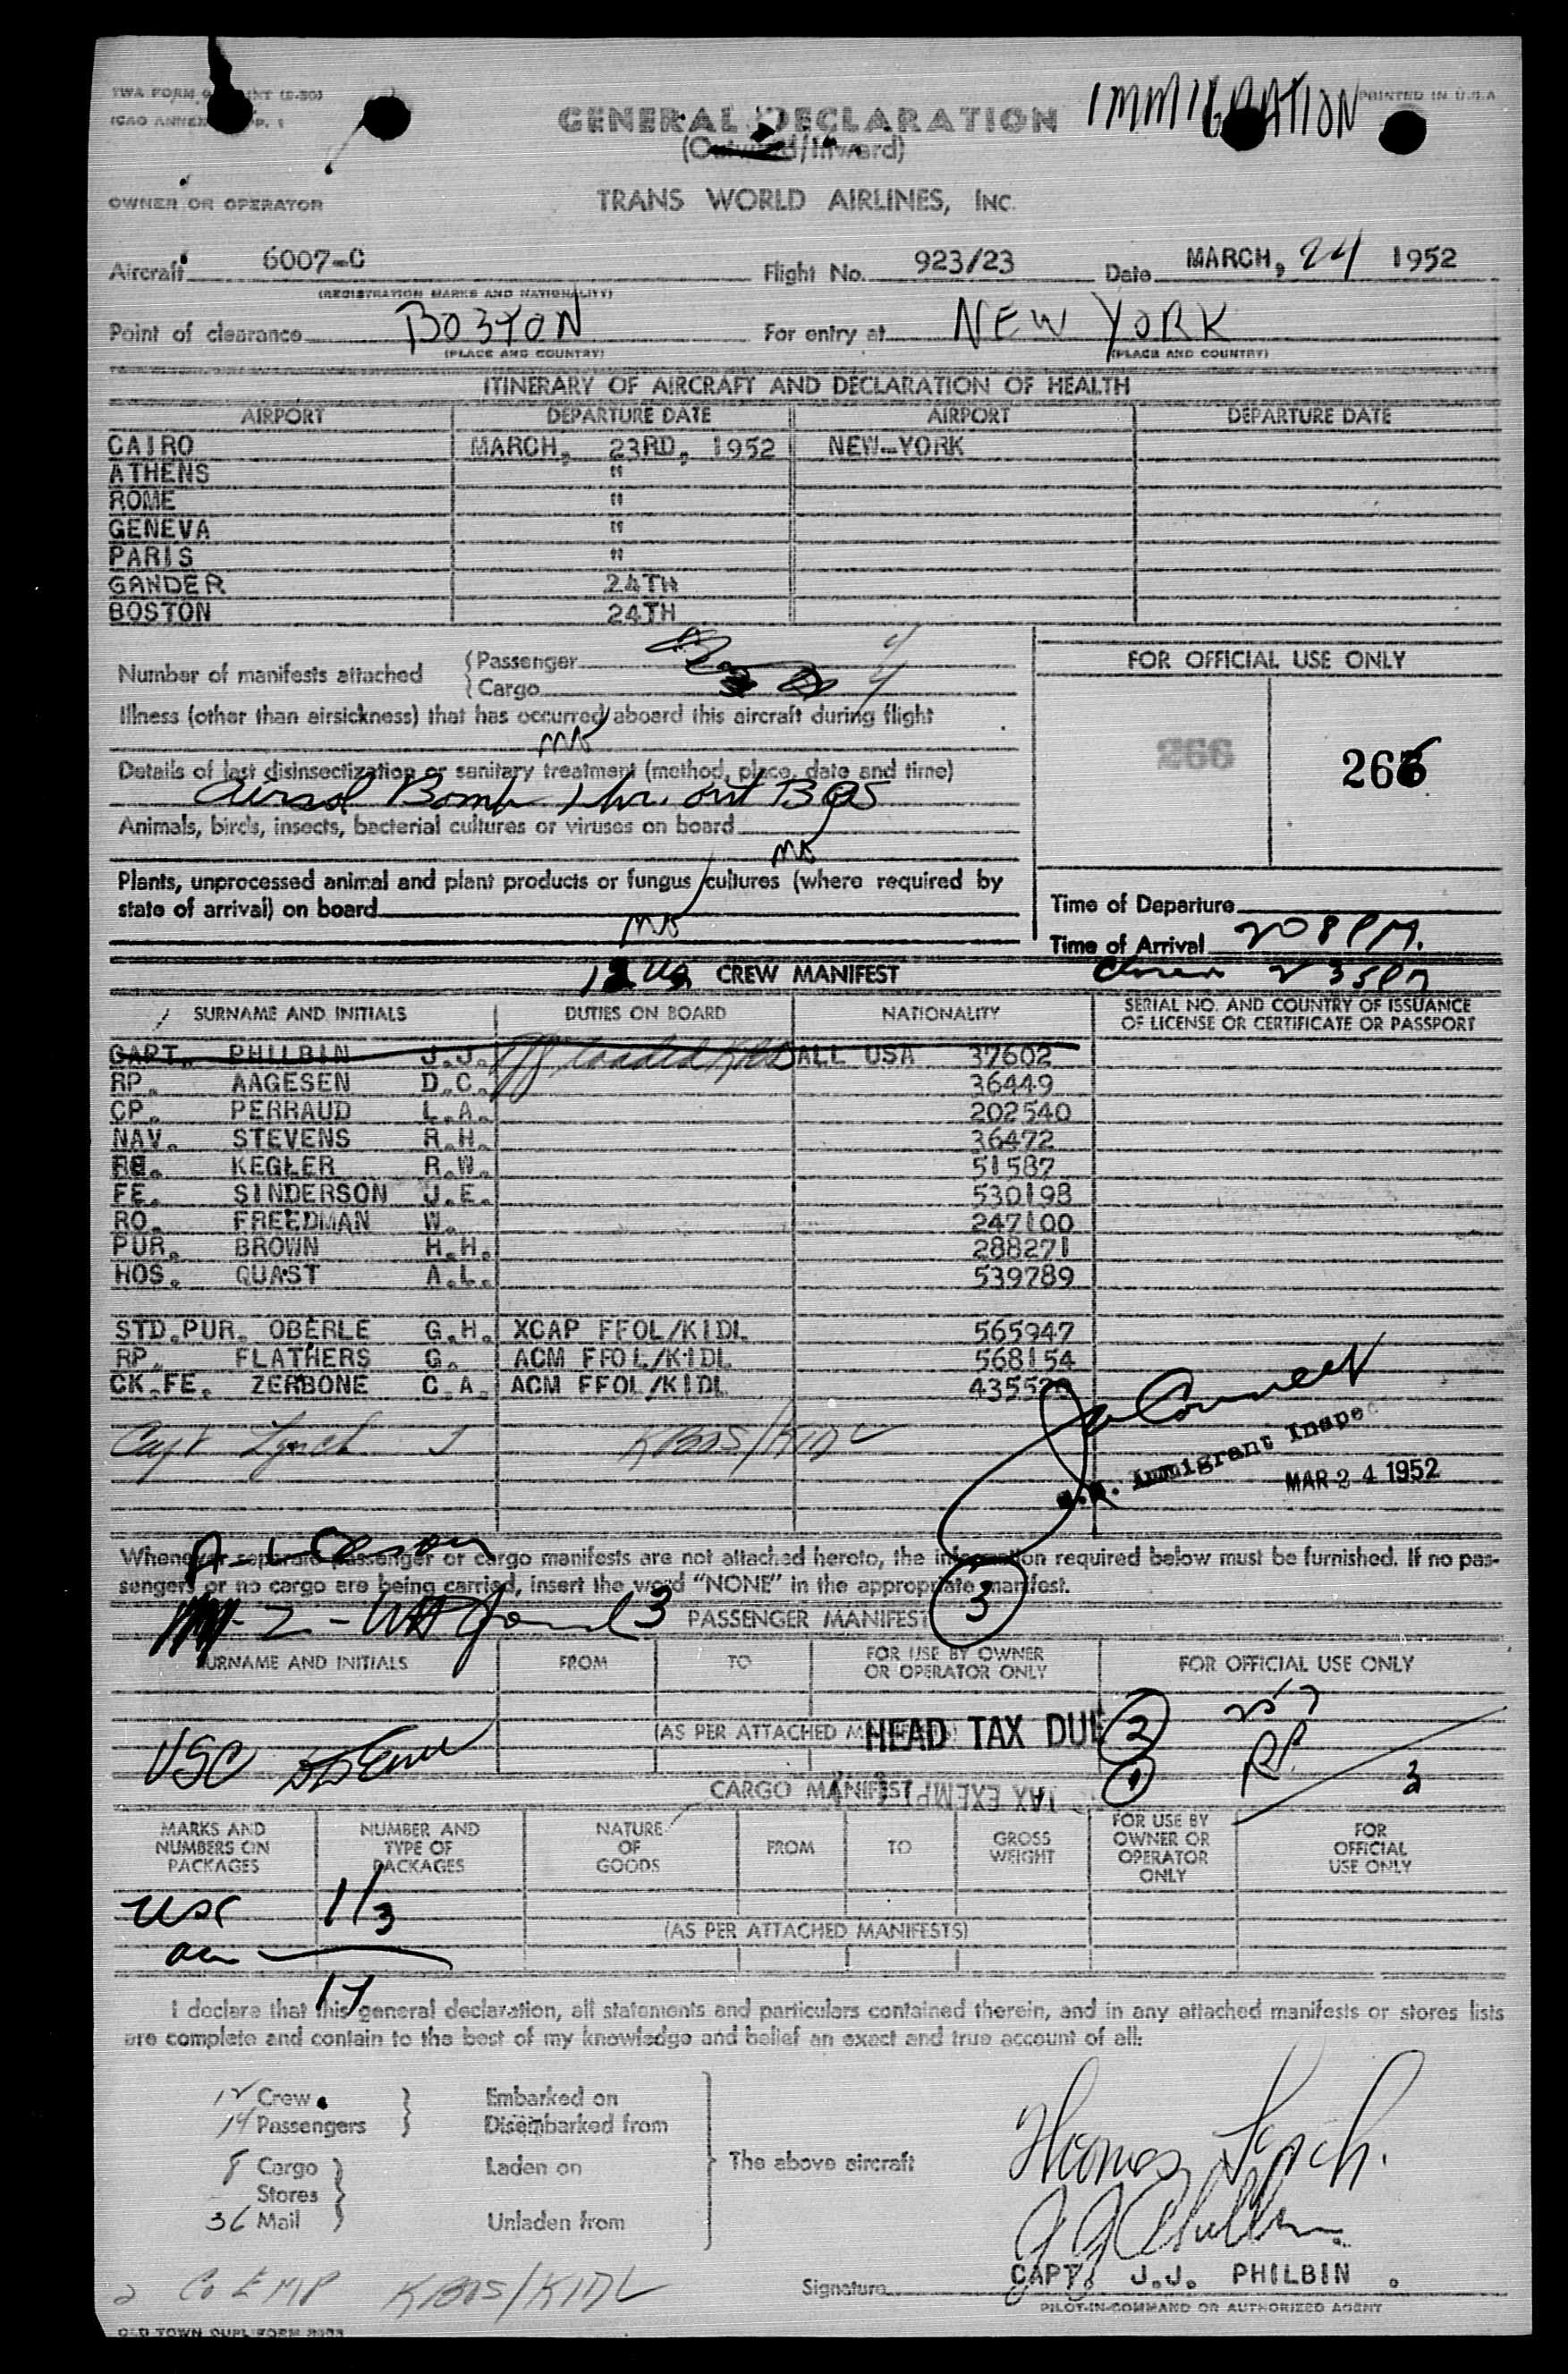 TWA FORM
ICAO ANNEX
PRINTED IN U.S.A
GENERAL DECLARATION IMMIGRATION
(Outward/Inward)
OWNER OR OPERATOR TRANS WORLD AIRLINES, INC.
Aircraft 6007-C Flight No. 923/23 Date MARCH, 24 1952
(REGISTRATION MARKS AND NATIONALITY)
Point of clearance BOSTON For entry at NEW YORK
(PLACE AND COUNTRY) (PLACE AND COUNTRY)
ITINERARY OF AIRCRAFT AND DECLARATION OF HEALTH
AIRPORT DEPARTURE DATE AIRPORT DEPARTURE DATE
CAIRO MARCH, 23RD, 1952 NEW-YORK
ATHENS "
ROME "
GENEVA "
PARIS "
GANDER 24TH
BOSTON 24TH
Number of manifests attached { Passenger
{ Cargo
FOR OFFICIAL USE ONLY
Illness (other than airsickness) that has occurred aboard this aircraft during flight
no
266 266
Details of last disinsectization or sanitary treatment (method, place, date and time)
Airsol Bomb 1 hr. out BOS
Animals, birds, insects, bacterial cultures or viruses on board
no
Plants, unprocessed animal and plant products or fungus cultures (where required by
state of arrival) on board
no
Time of Departure
Time of Arrival 208 PM.
235 PM
CREW MANIFEST
SURNAME AND INITIALS DUTIES ON BOARD NATIONALITY SERIAL NO. AND COUNTRY OF ISSUANCE
OF LICENSE OR CERTIFICATE OR PASSPORT
CAPT. PHILBIN J.J. Off loaded KBOS ALL USA 37602
RP. AAGESEN D.C. 36449
CP. PERRAUD L.A. 202540
NAV. STEVENS R.H. 36472
KEGLER R.W. 51587
FE. SINDERSON J.E. 530198
RO. FREEDMAN W. 247100
PUR. BROWN H.H. 288271
HOS. QUAST A.L. 539789
STD.PUR. OBERLE G.H. XCAP FFOL/KIDL 565947
RP. FLATHERS G. ACM FFOL/KIDL 568154
CK.FE. ZERBONE C.A. ACM FFOL/KIDL
Capt Lynch J KBOS/KIDL
Immigrant Inspec
MAR 24 1952
Whenever separate passenger or cargo manifests are not attached hereto, the information required below must be furnished. If no pas-
sengers or no cargo are being carried, insert the word "NONE" in the appropriate manifest.
3 PASSENGER MANIFEST 3
SURNAME AND INITIALS FROM TO FOR USE BY OWNER
OR OPERATOR ONLY FOR OFFICIAL USE ONLY
(AS PER ATTACHED MANIFESTS)
HEAD TAX DUE 2
USC
CARGO MANIFEST TAX EXEMPT 1 3
MARKS AND
NUMBERS ON
PACKAGES NUMBER AND
TYPE OF
PACKAGES NATURE
OF
GOODS FROM TO GROSS
WEIGHT FOR USE BY
OWNER OR
OPERATOR
ONLY FOR
OFFICIAL
USE ONLY
USC
(AS PER ATTACHED MANIFESTS)
I declare that this general declaration, all statements and particulars contained therein, and in any attached manifests or stores lists
are complete and contain to the best of my knowledge and belief an exact and true account of all:
12 Crew Embarked on
14 Passengers Disembarked from
8 Cargo Laden on The above aircraft Thomas Lynch.
Stores
36 Mail Unladen from
J J Philbin
CAPT. J.J. PHILBIN .
Signature
PILOT-IN-COMMAND OR AUTHORIZED AGENT
2 Co EMP KBOS/KIDL
OLD TOWN DUPL FORM